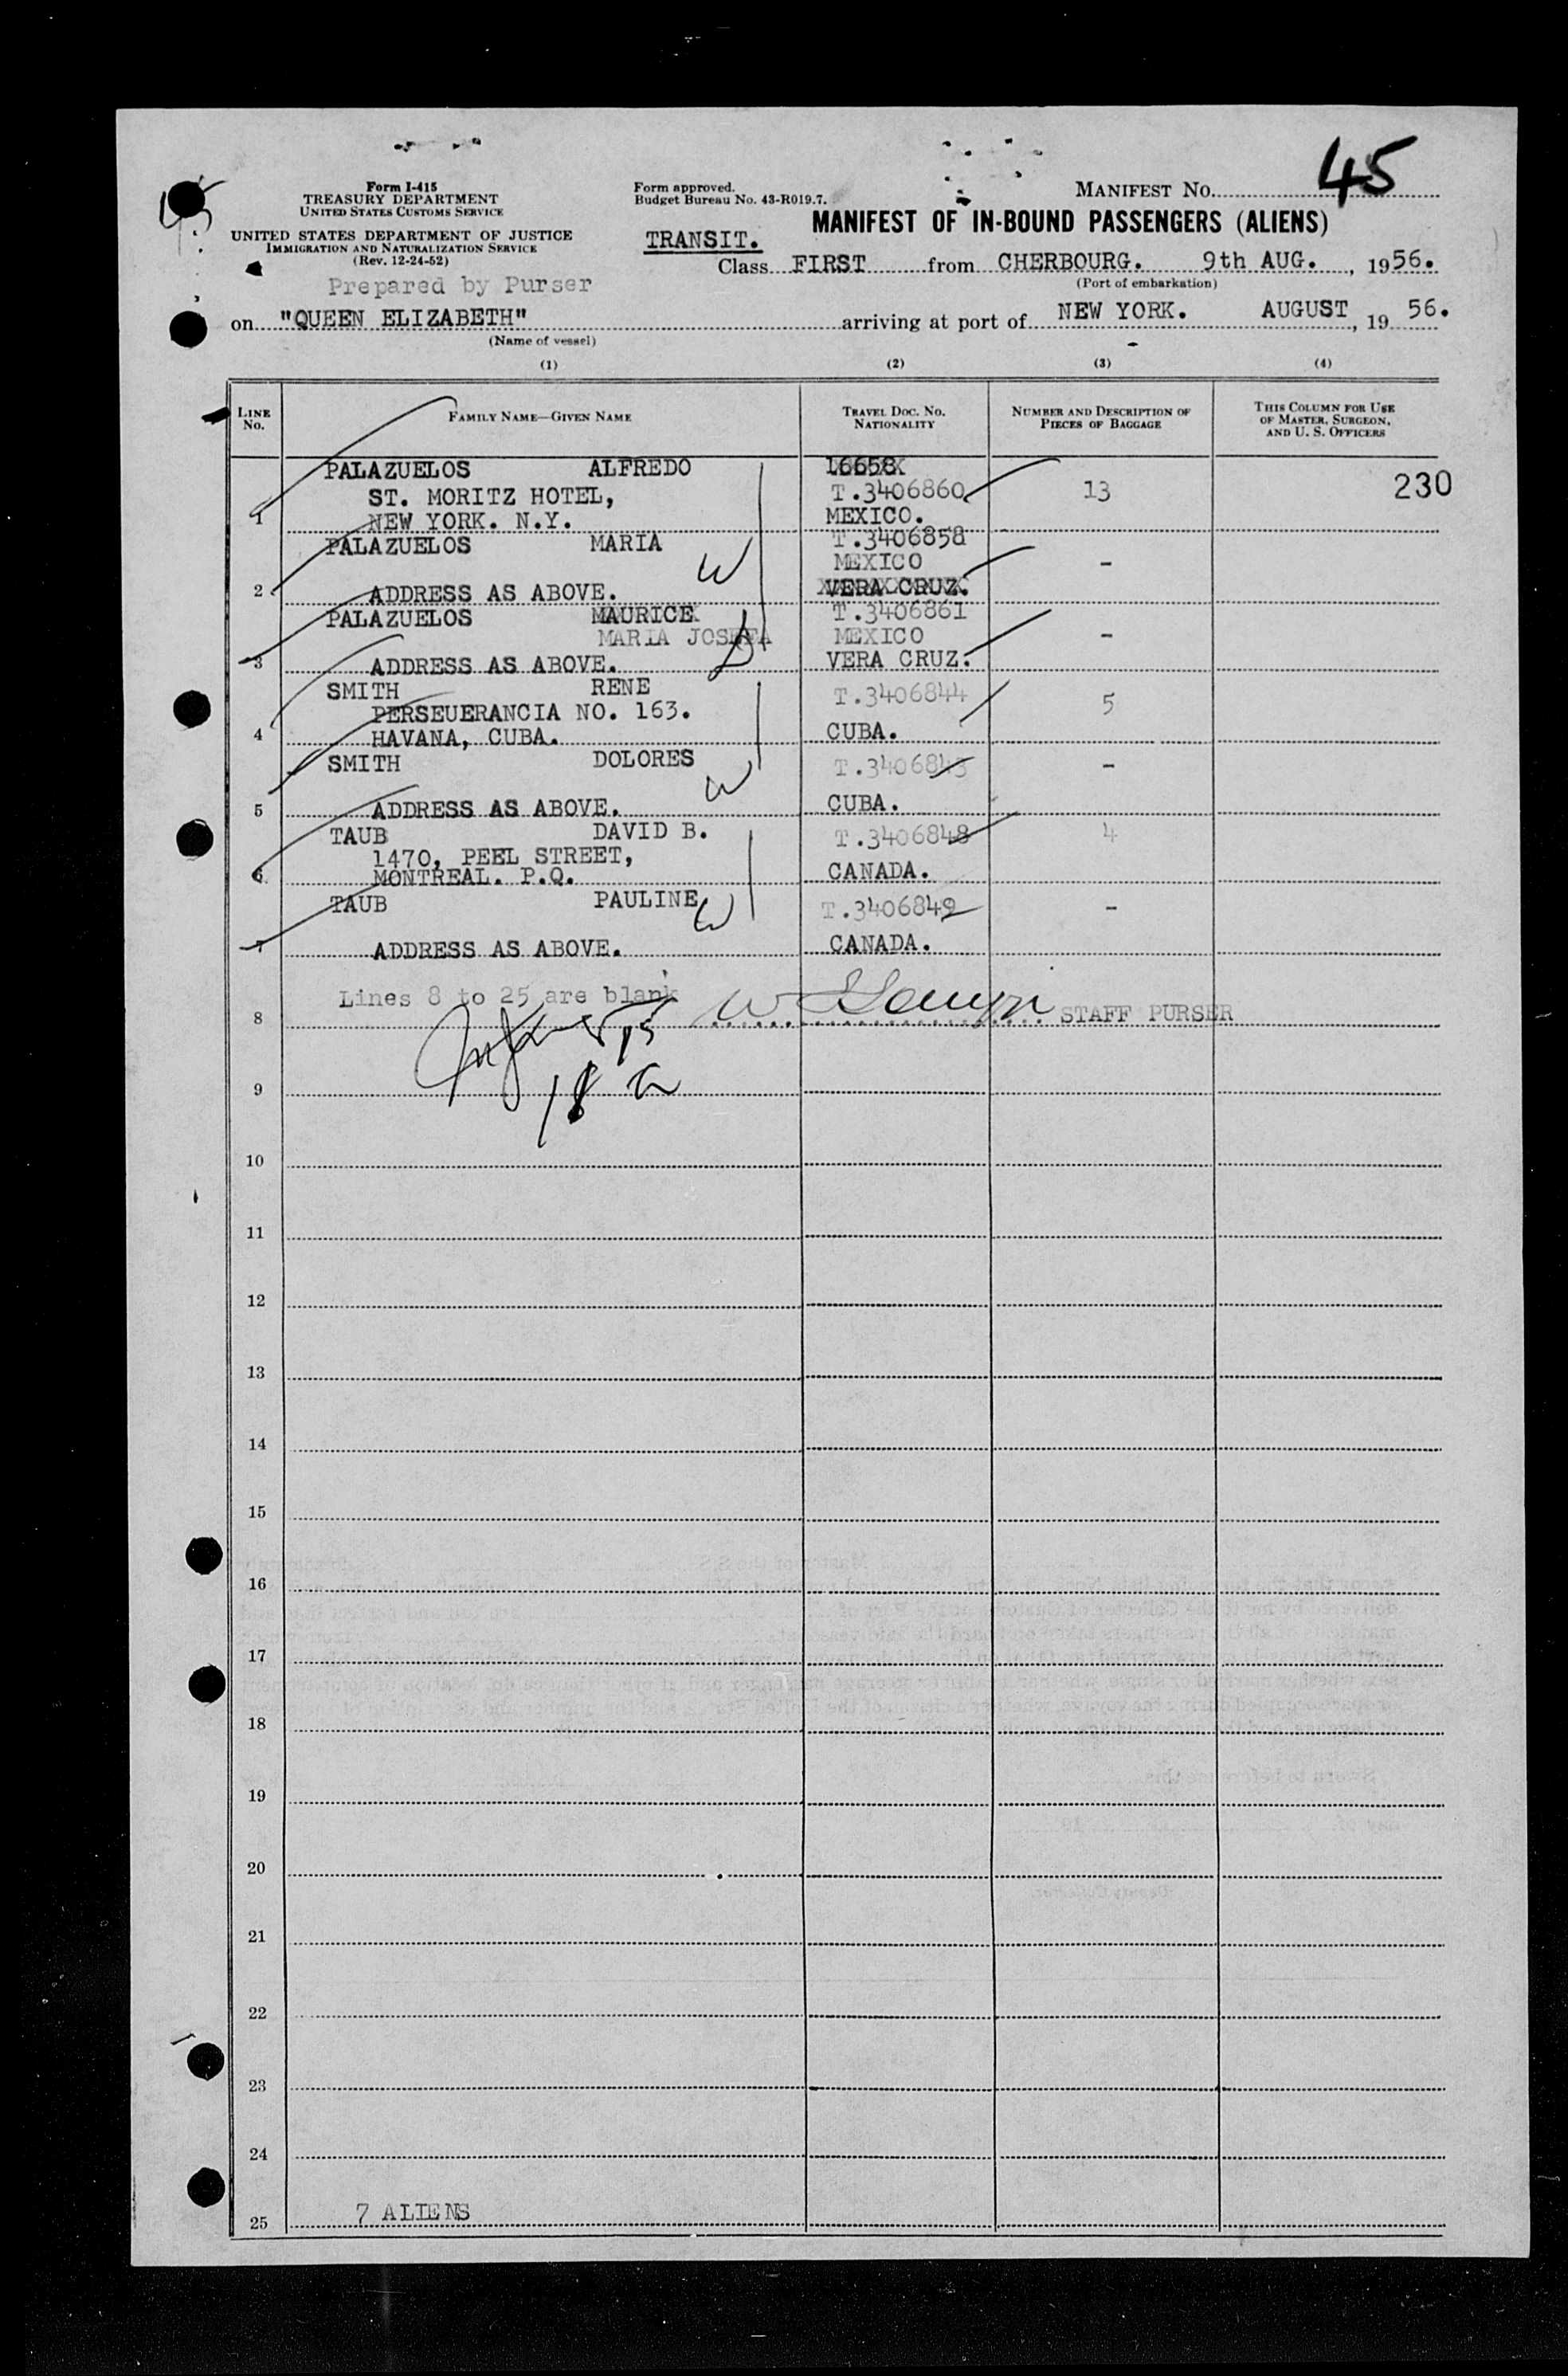 45
Form I-415
TREASURY DEPARTMENT
UNITED STATES CUSTOMS SERVICE
UNITED STATES DEPARTMENT OF JUSTICE
IMMIGRATION AND NATURALIZATION SERVICE
(Rev. 12-24-52)
Prepared by Purser
Form approved.
Budget Bureau No. 43-R019.7.
MANIFEST NO. 45
MANIFEST OF IN-BOUND PASSENGERS (ALIENS)
TRANSIT.
Class FIRST from CHERBOURG. 9th AUG., 1956.
(Port of embarkation)
on "QUEEN ELIZABETH" arriving at port of NEW YORK. AUGUST, 19 56.
(Name of vessel)
(1) (2) (3) (4)
LINE No. FAMILY NAME—GIVEN NAME TRAVEL DOC. NO. NATIONALITY NUMBER AND DESCRIPTION OF PIECES OF BAGGAGE THIS COLUMN FOR USE OF MASTER, SURGEON, AND U. S. OFFICERS
PALAZUELOS ALFREDO 16658
ST. MORITZ HOTEL, T.3406860 13 230
1 NEW YORK. N.Y. MEXICO.
PALAZUELOS MARIA T.3406858
W MEXICO -
2 ADDRESS AS ABOVE. VERA CRUZ.
PALAZUELOS MAURICE T.3406861
MARIA JOSEFA MEXICO -
3 ADDRESS AS ABOVE. VERA CRUZ.
SMITH RENE T.3406844
PERSEUERANCIA NO. 163. 5
4 HAVANA, CUBA. CUBA.
SMITH DOLORES T.3406843 -
W
5 ADDRESS AS ABOVE. CUBA.
TAUB DAVID B. T.3406848 4
1470, PEEL STREET,
6 MONTREAL. P.Q. CANADA.
TAUB PAULINE W T.3406849 -
7 ADDRESS AS ABOVE. CANADA.
Lines 8 to 25 are blank
8 STAFF PURSER
9
10
11
12
13
14
15
16
17
18
19
20
21
22
23
24
7 ALIENS
25